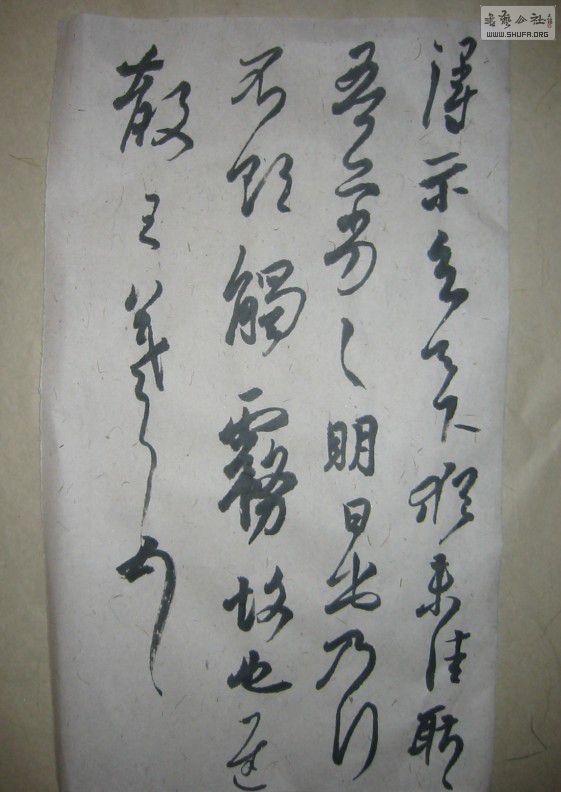 書藝公社
WWW.SHUFA.ORG
得示知足下猶未佳耿々
吾亦劣々明日出乃行
不欲觸霧故也遲
散王羲之頓首